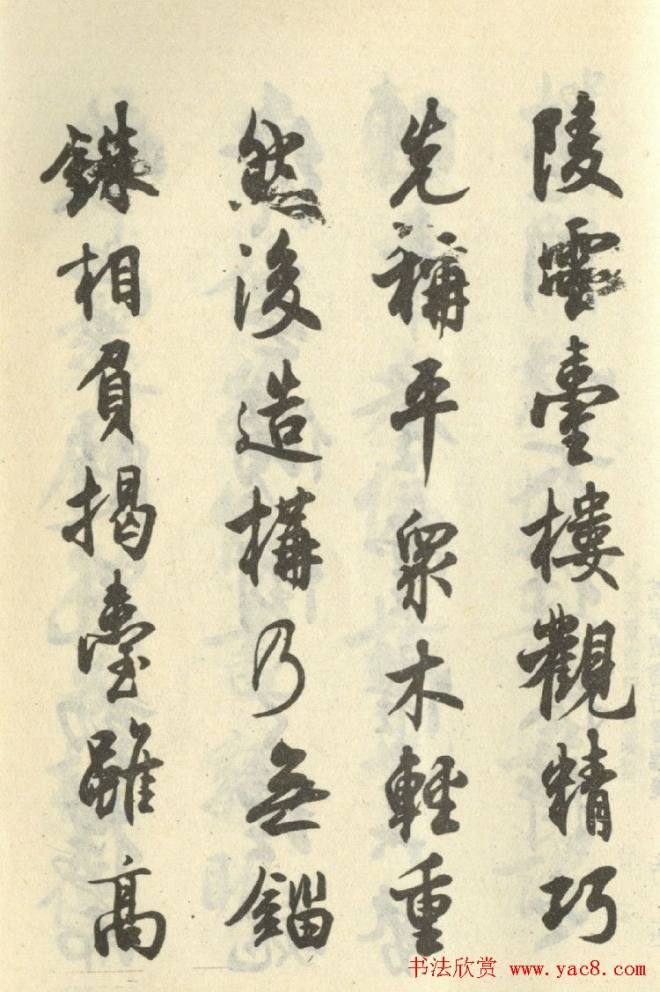 陵雲臺樓觀精巧
先稱平衆木輕重
然後造構乃無錙
銖相負揭臺雖高
书法欣赏 www.yac8.com